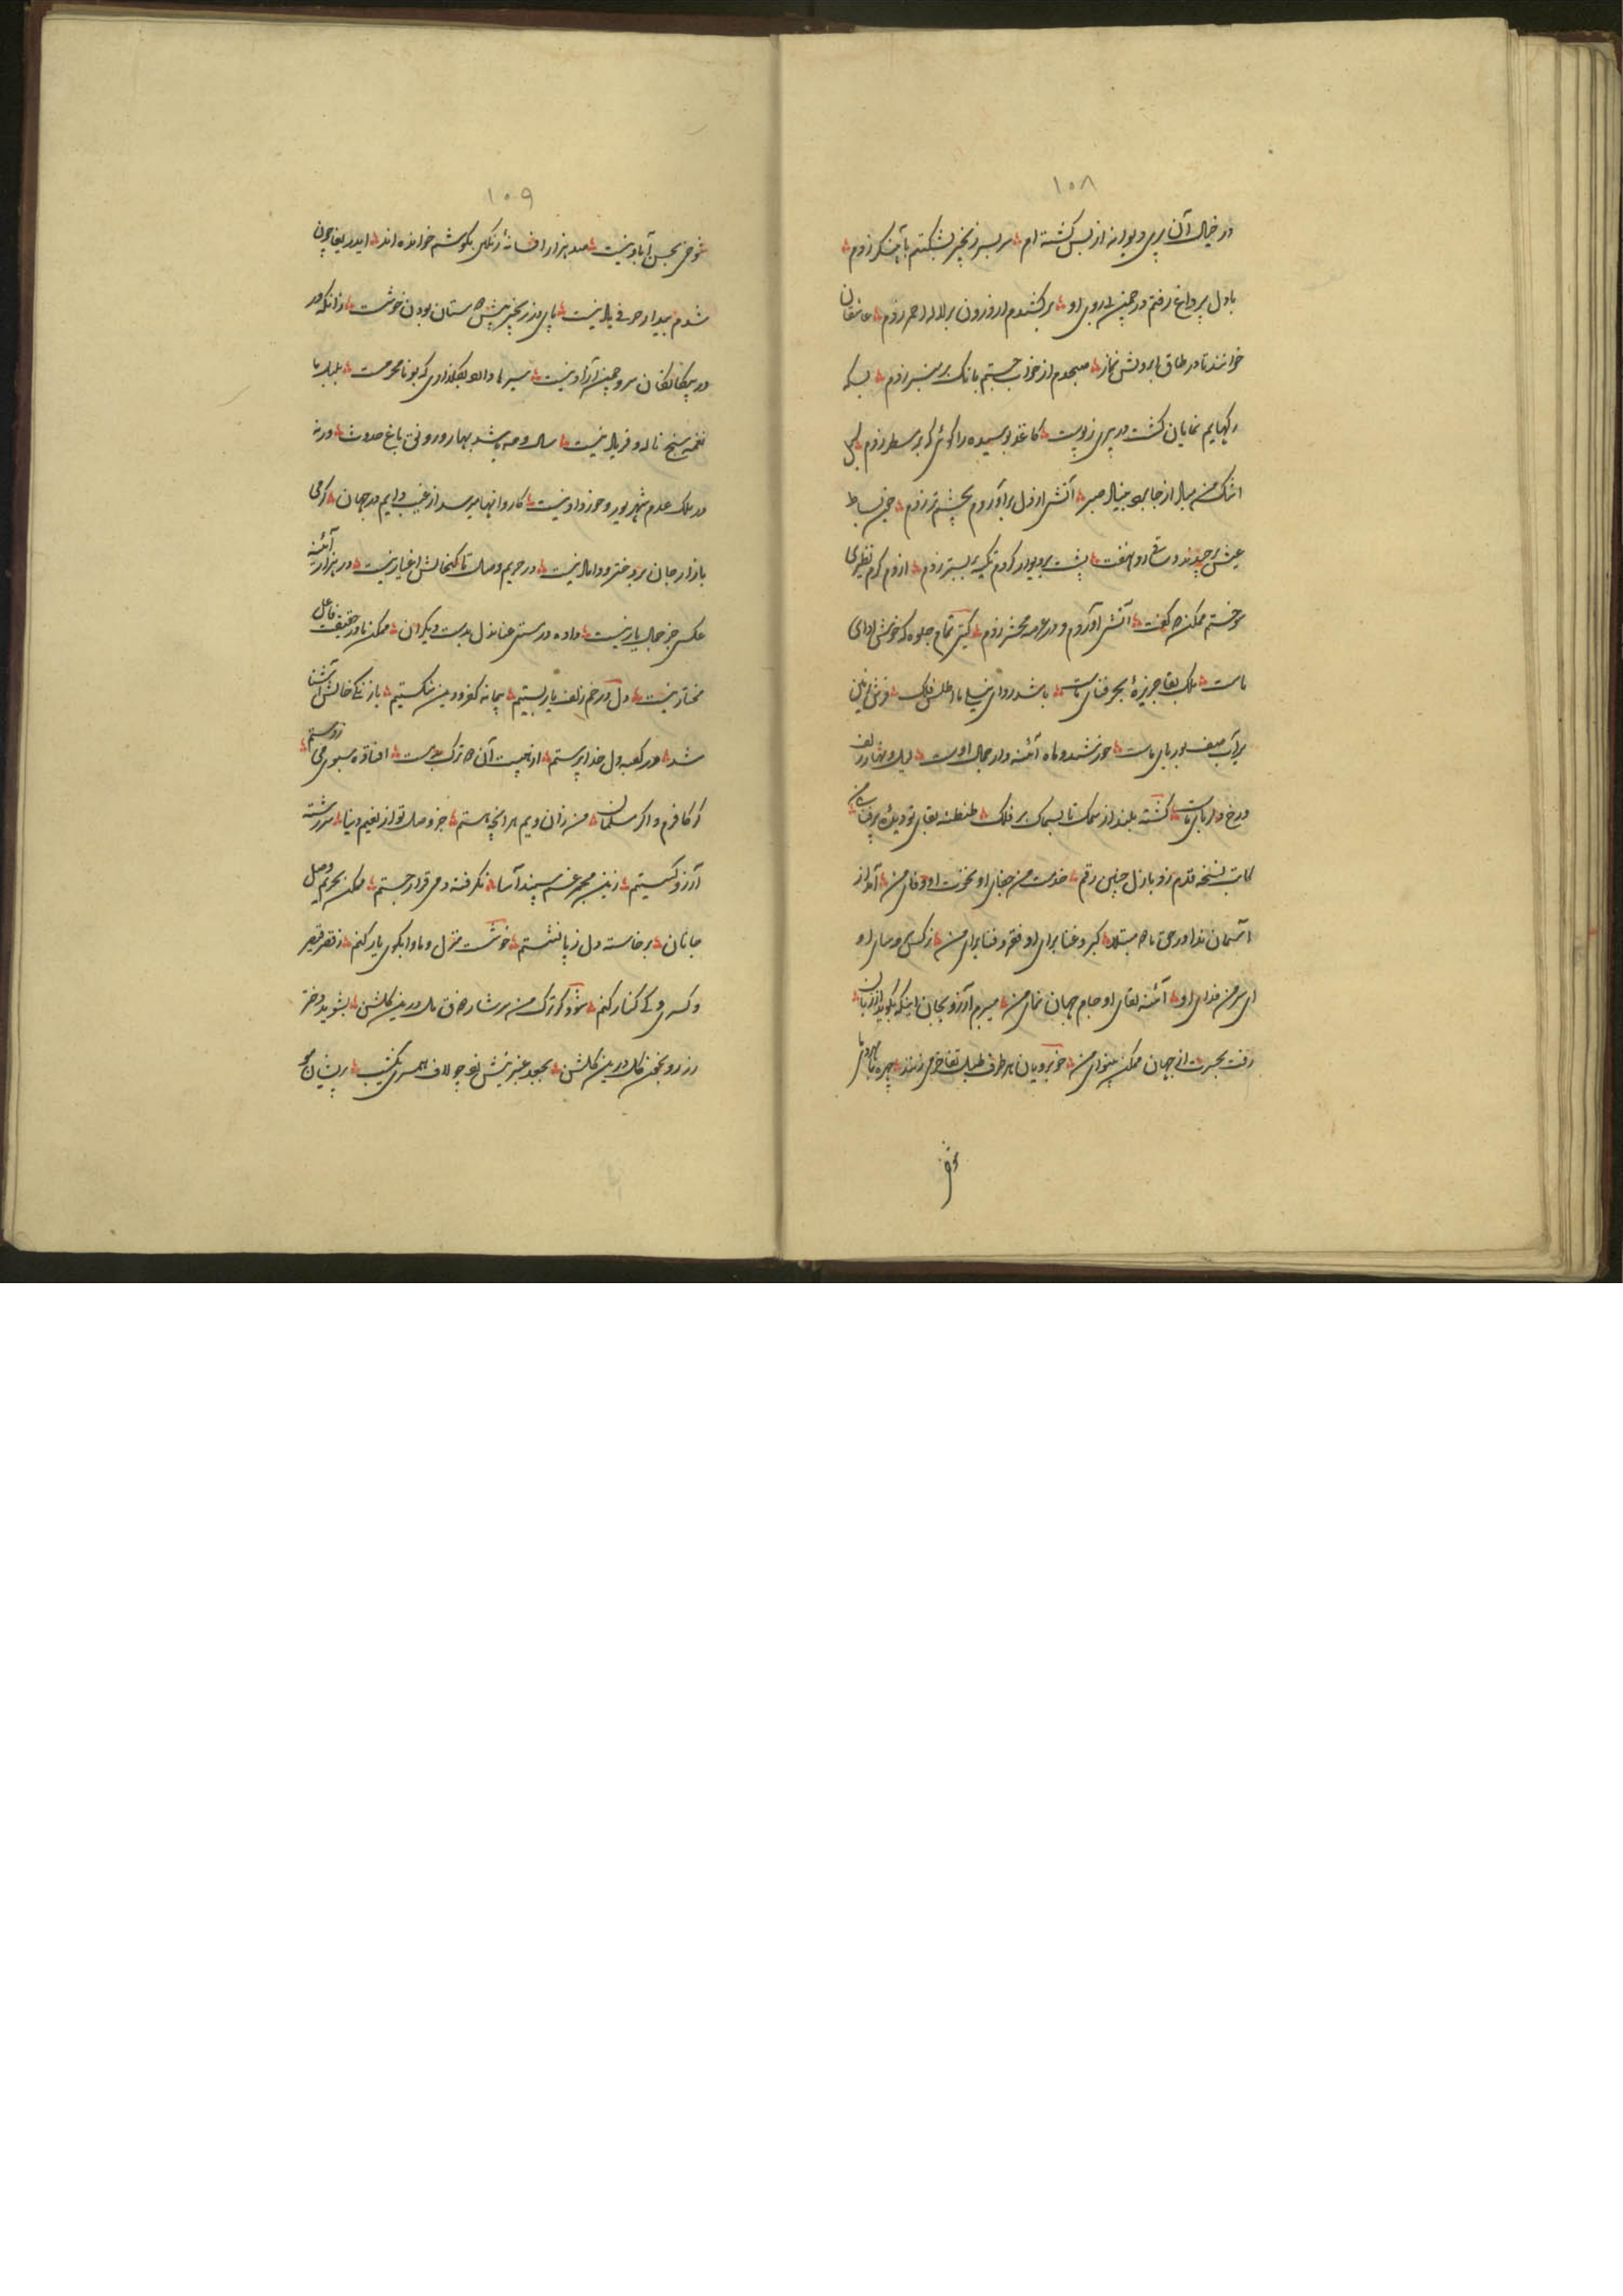 ۱۰۸
در خیال آن پری دیوانه از بس گشته ام سر بسر زنجیر بشکستم باهنگر زدم
با دل پر داغ رفتم در چمن بی روی او برکشیدم از درون بر لاله احمر زدم عاشقان
خوانند تا در طاق ابرویش نماز صبحدم از خواب جستم بانک بر منبر زدم بسکه
رکهایم نمایان کشت در پیری ز پوست کاغذ بوسیده را کوئی که بر مسطر زدم
اشک من سیل از جا صبر آتش از دل برآوردم بچشم تر زدم چون بساط
عیش برچیدند و ساقی رو نهفت پشت بر دیوار کردم تکیه بر بستر زدم از دم کرم نظیری
سوختم ممکن که گفت آتش آوردم و در عرصه محشر زدم کیتی تمام جلوه که خویش ادای
ماست ملک بقا جزیره بحر فنای ماست باشد ردای نیلی ما اطلس فلک فرش زمین
برآب صف بوریای ماست خورشید و ماه آئنه دار جمال اوست لیل و نهار زلف
و رخ دلربای ماست گشته بلند از سمک تا بسماک بر فلک طنطنه بقای تو
کاتب نسخه قدم زد بازل چنین رقم خدمت من جفای او نخوت او وفای من آه از
آسمان نداور حق ما مبتلا کبر و غنا برای او فقر و فنا برای من نرکس او
ای سر من فدای او آئنه لقای او جام جهان نمای من میبرم آرزو بجان اینکه بگوید از زبان
رفت بحسرت از جهان ممکن بینوای من خوبرویان هر طرف طبل تفاخر می زنند چهره
شوخی
۱۰۹
شوخی بحسن آباد نیست صد هزار افسانه رنگین بگوشم خوانده اند ایدریغا چون
شدم بیدار حرفی یاد نیست پای در زنجیر پیش دوستان بودن خوشست زانکه در
بیکانکان سرو چمن آزاد نیست سیر ما والله بکلزاری که بو نامحرمست بلبل ما
نغمه سنج ناله و فریاد نیست سال و مه باشد بهار و رونق باغ حدوث ورنه
در ملک عدم شهریور و خرداد نیست کاروانها میرسد از غیب دایم در جهان گرمی
بازار جان بر دختر و داماد نیست در حریم وصل تا کنجایش اغیار نیست در هزار آئینه
عکسی جز جمال یار نیست داده در مستی عنان دل بدست دیگران ممکن ما در حقیقت فاعل
مختار نیست دل در خم زلف یار بستیم پیمانه کفر و دین شکستیم با زنکی خالش آشنا
شد در کعبه دل خدا پرستم از هیبت آن که ترک بدمست افتاده سبوی می ز دستم
کر کافرم و اگر مسلمان من زان ویم هر آنچه هستم جز وصل تو از نعیم دنیا سر رشته
آرزو کسستیم زین مجمر غم سپند آسا نکرفته دمی قرار جستم ممکن بحریم وصل
جانان برخاسته دل ز پا نشستم خوشست منزل و ماوا بکوی یار کنم ز قصر قیصر
و کسری و کی کنار کنم شود کر ترک من سرشار می مل درین کلشن بشوید دختر
رز رو بخون کل درین کلشن بجعد عنبرینش چو لاف همسری پریشان